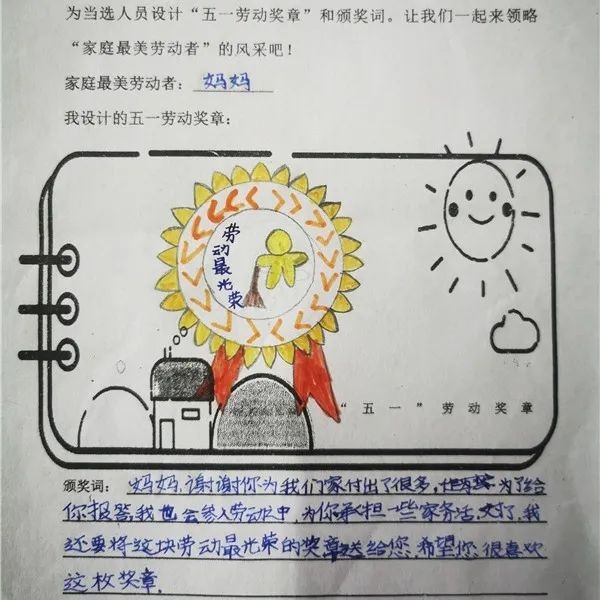 为当选人员设计“五一劳动奖章”和颁奖词。让我们一起来领略
“家庭最美劳动者”的风采吧！
家庭最美劳动者：妈妈
我设计的五一劳动奖章：
劳动最光荣
“五一”劳动奖章
颁奖词：妈妈，谢谢你为我们家付出了很多，为了给
你报答，我也会参入劳动中，为你承担一些家务活，对了，我
还要将这块劳动最光荣的奖章送给您，希望您很喜欢
这枚奖章.